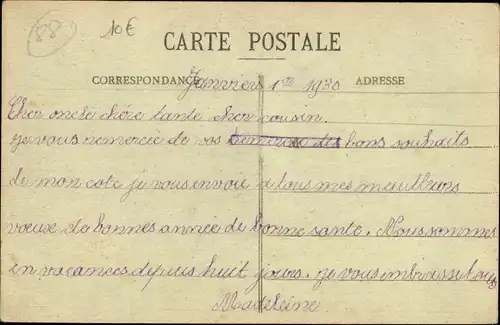 88
10€
CARTE POSTALE
CORRESPONDANCE
ADRESSE
Janviers 1er 1930
Cher oncle chère tante cher cousin.
je vous remercie de vos bons souhaits
de mon cote je vous envoie a tous mes meulleurs
voeux de bonnes année de bonne sante. Nous sommes
en vacances depuis huit jours. je vous embrasse tous
Madeleine